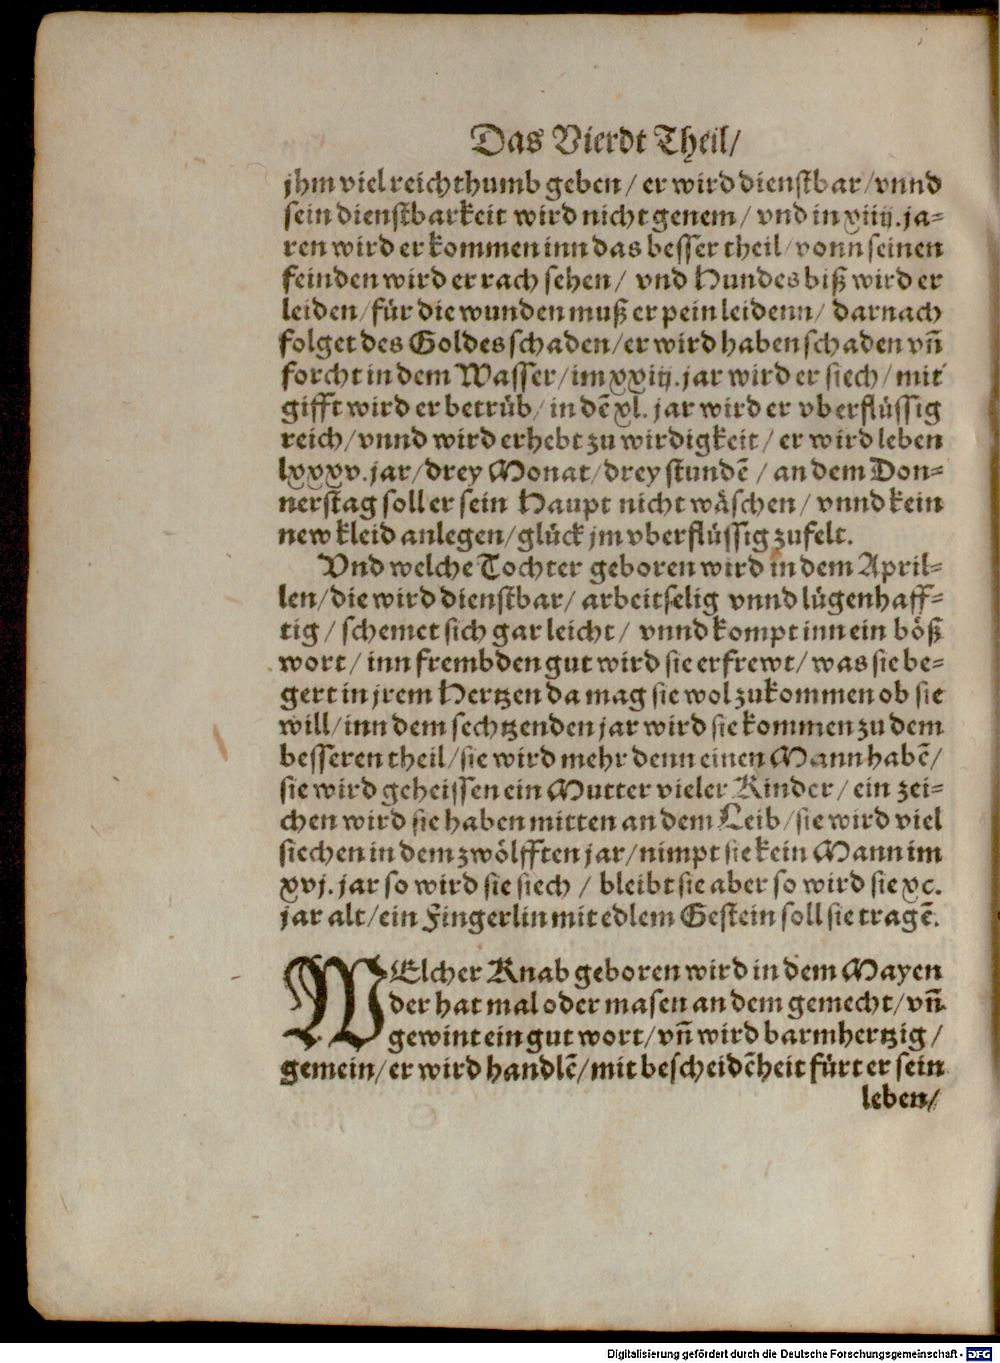 Das Vierdt Theil/
jhm viel reichthumb geben/ er wird dienstbar/ vnnd
sein dienstbarkeit wird nicht genem/ vnd in xiiij. ja-
ren wird er kommen inn das besser theil/ vonn seinen
feinden wird er rach sehen/ vnd Hundes biß wird er
leiden/ für die wunden muß er pein leidenn/ darnach
folget des Goldes schaden/ er wird haben schaden vñ
forcht in dem Wasser/ im xxiij. jar wird er siech/ mit
gifft wird er betrüb/ in dẽ xl. jar wird er vberflüssig
reich/ vnnd wird erhebt zu wirdigkeit/ er wird leben
lxxxv. jar/ drey Monat/ drey stundẽ/ an dem Don-
nerstag soll er sein Haupt nicht wäschen/ vnnd kein
new kleid anlegen/ glück jm vberflüssig zufelt.
Vnd welche Tochter geboren wird in dem April-
len/ die wird dienstbar/ arbeitselig vnnd lügenhaff-
tig/ schemet sich gar leicht/ vnnd kompt inn ein böß
wort/ inn frembden gut wird sie erfrewt/ was sie be-
gert in jrem Hertzen da mag sie wol zukommen ob sie
will/ inn dem sechtzenden jar wird sie kommen zu dem
besseren theil/ sie wird mehr denn einen Mann habẽ/
sie wird geheissen ein Mutter vieler Kinder/ ein zei-
chen wird sie haben mitten an dem Leib/ sie wird viel
siechen in dem zwölfften jar/ nimpt sie kein Mann im
xvj. jar so wird sie siech/ bleibt sie aber so wird sie xc.
jar alt/ ein Fingerlin mit edlem Gestein soll sie tragẽ.
WElcher Knab geboren wird in dem Mayen
der hat mal oder masen an dem gemecht/ vñ
gewint ein gut wort/ vñ wird barmhertzig/
gemein/ er wird handlẽ/ mit bescheidẽheit fürt er sein
leben/
Digitalisierung gefördert durch die Deutsche Forschungsgemeinschaft - DFG